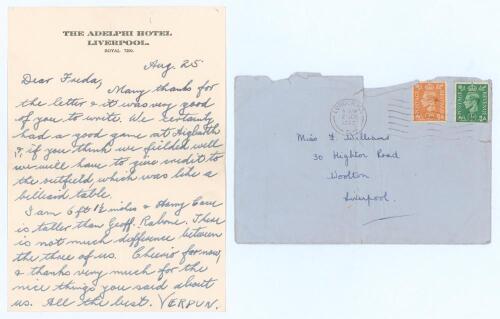 THE ADELPHI HOTEL
LIVERPOOL.
ROYAL 7200.
Aug. 25
Dear Freda,
Many thanks for
the letter & it was very good
of you to write. We certainly
had a good game at Aigburth
&, if you think we fielded well
we will have to give credit to
the outfield which was like a
billiard table.
I am 6 ft 1½ inches & Harry Cave
is taller than Geoff. Rabone. There
is not much difference between
the three of us. Cheerio for now,
& thanks very much for the
nice things you said about
us. All the best. VERDUN.
Miss F Williams
30 Highton Road
Woolton
Liverpool.